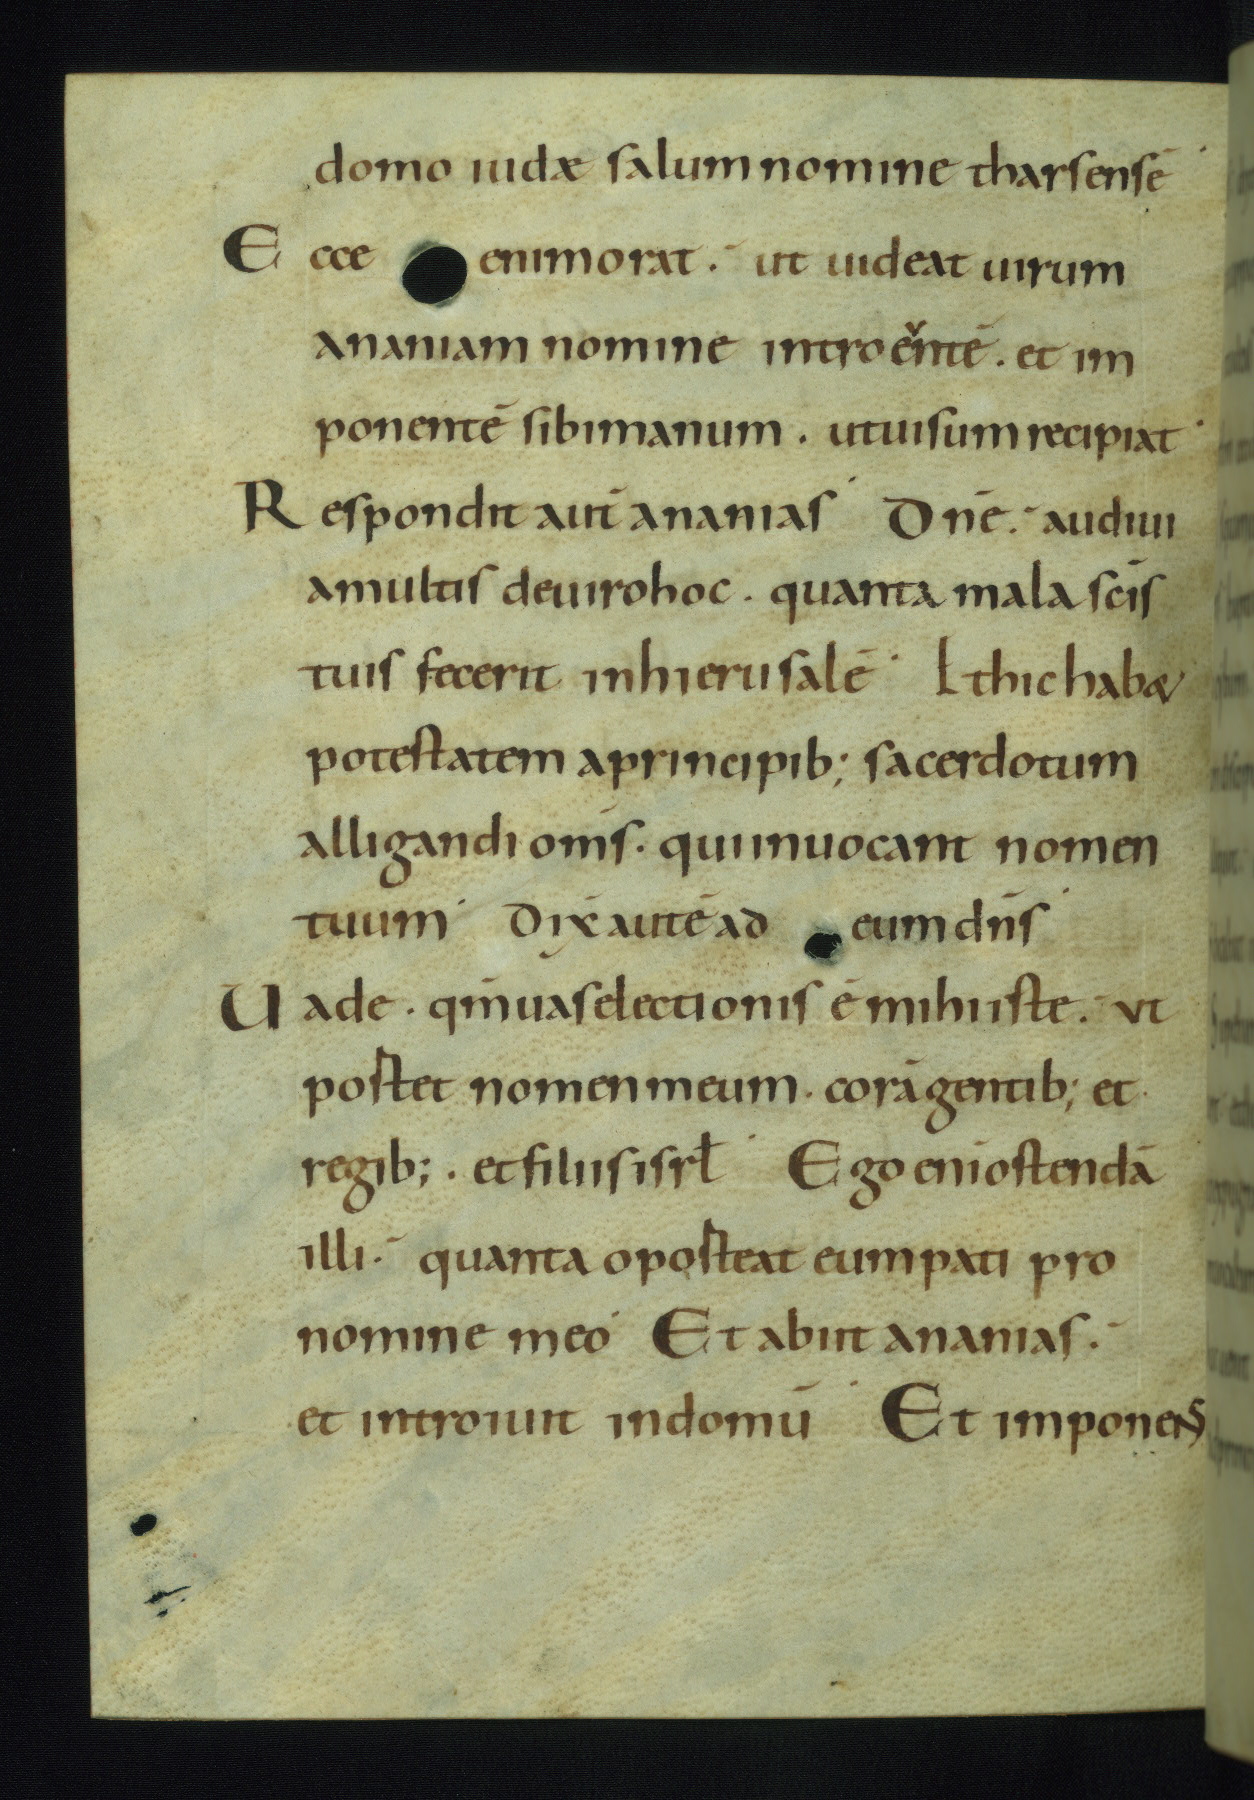 domo iudæ salum nomine tharsensē
Ecce enim orat. ut uideat uirum
ananiam nomine introeūntē. et im
ponentē sibi manum. ut uisum recipiat
Respondit aut̄ ananias Dn̄e. audiui
a multis de uiro hoc. quanta mala sc̄is
tuis fecerit in hierusalē Et hic habet
potestatem a principib; sacerdotum
alligandi om̄s. qui inuocant nomen
tuum Dix̄ autē ad eum dn̄s
Uade. qm̄ uas electionis ē mihi iste. ut
portet nomen meum. corā gentib; et
regib;. et filiis isrł Ego eni ostendā
illi. quanta oporteat eum pati pro
nomine meo Et abiit ananias.
et introiuit in domū Et imponens